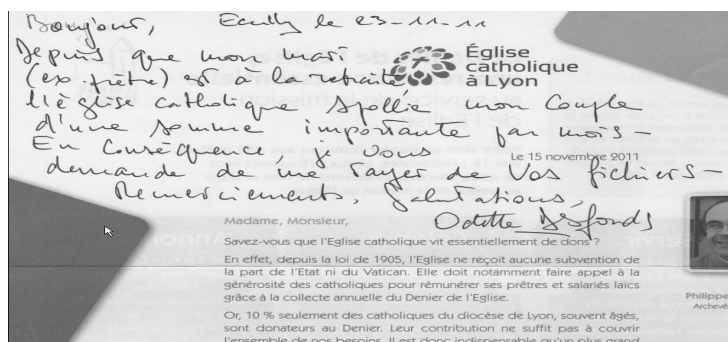 Bonjour, Ecully le 23-11-11
Depuis que mon mari
(ex prêtre) est à la retraite
l'église catholique spolie mon couple
d'une somme importante par mois -
En conséquence, je vous
demande de me rayer de vos fichiers -
Remerciements, Salutations,
Odette Desfonds
Église
catholique
à Lyon
Le 15 novembre 2011
Madame, Monsieur,
Savez-vous que l'Eglise catholique vit essentiellement de dons ?
En effet, depuis la loi de 1905, l'Eglise ne reçoit aucune subvention de
la part de l'Etat ni du Vatican. Elle doit notamment faire appel à la
générosité des catholiques pour rémunérer ses prêtres et salariés laïcs
grâce à la collecte annuelle du Denier de l'Eglise.
Or, 10 % seulement des catholiques du diocèse de Lyon, souvent âgés,
sont donateurs au Denier. Leur contribution ne suffit pas à couvrir
l'ensemble de nos besoins. Il est donc indispensable qu'un plus grand
Philippe
Archevê